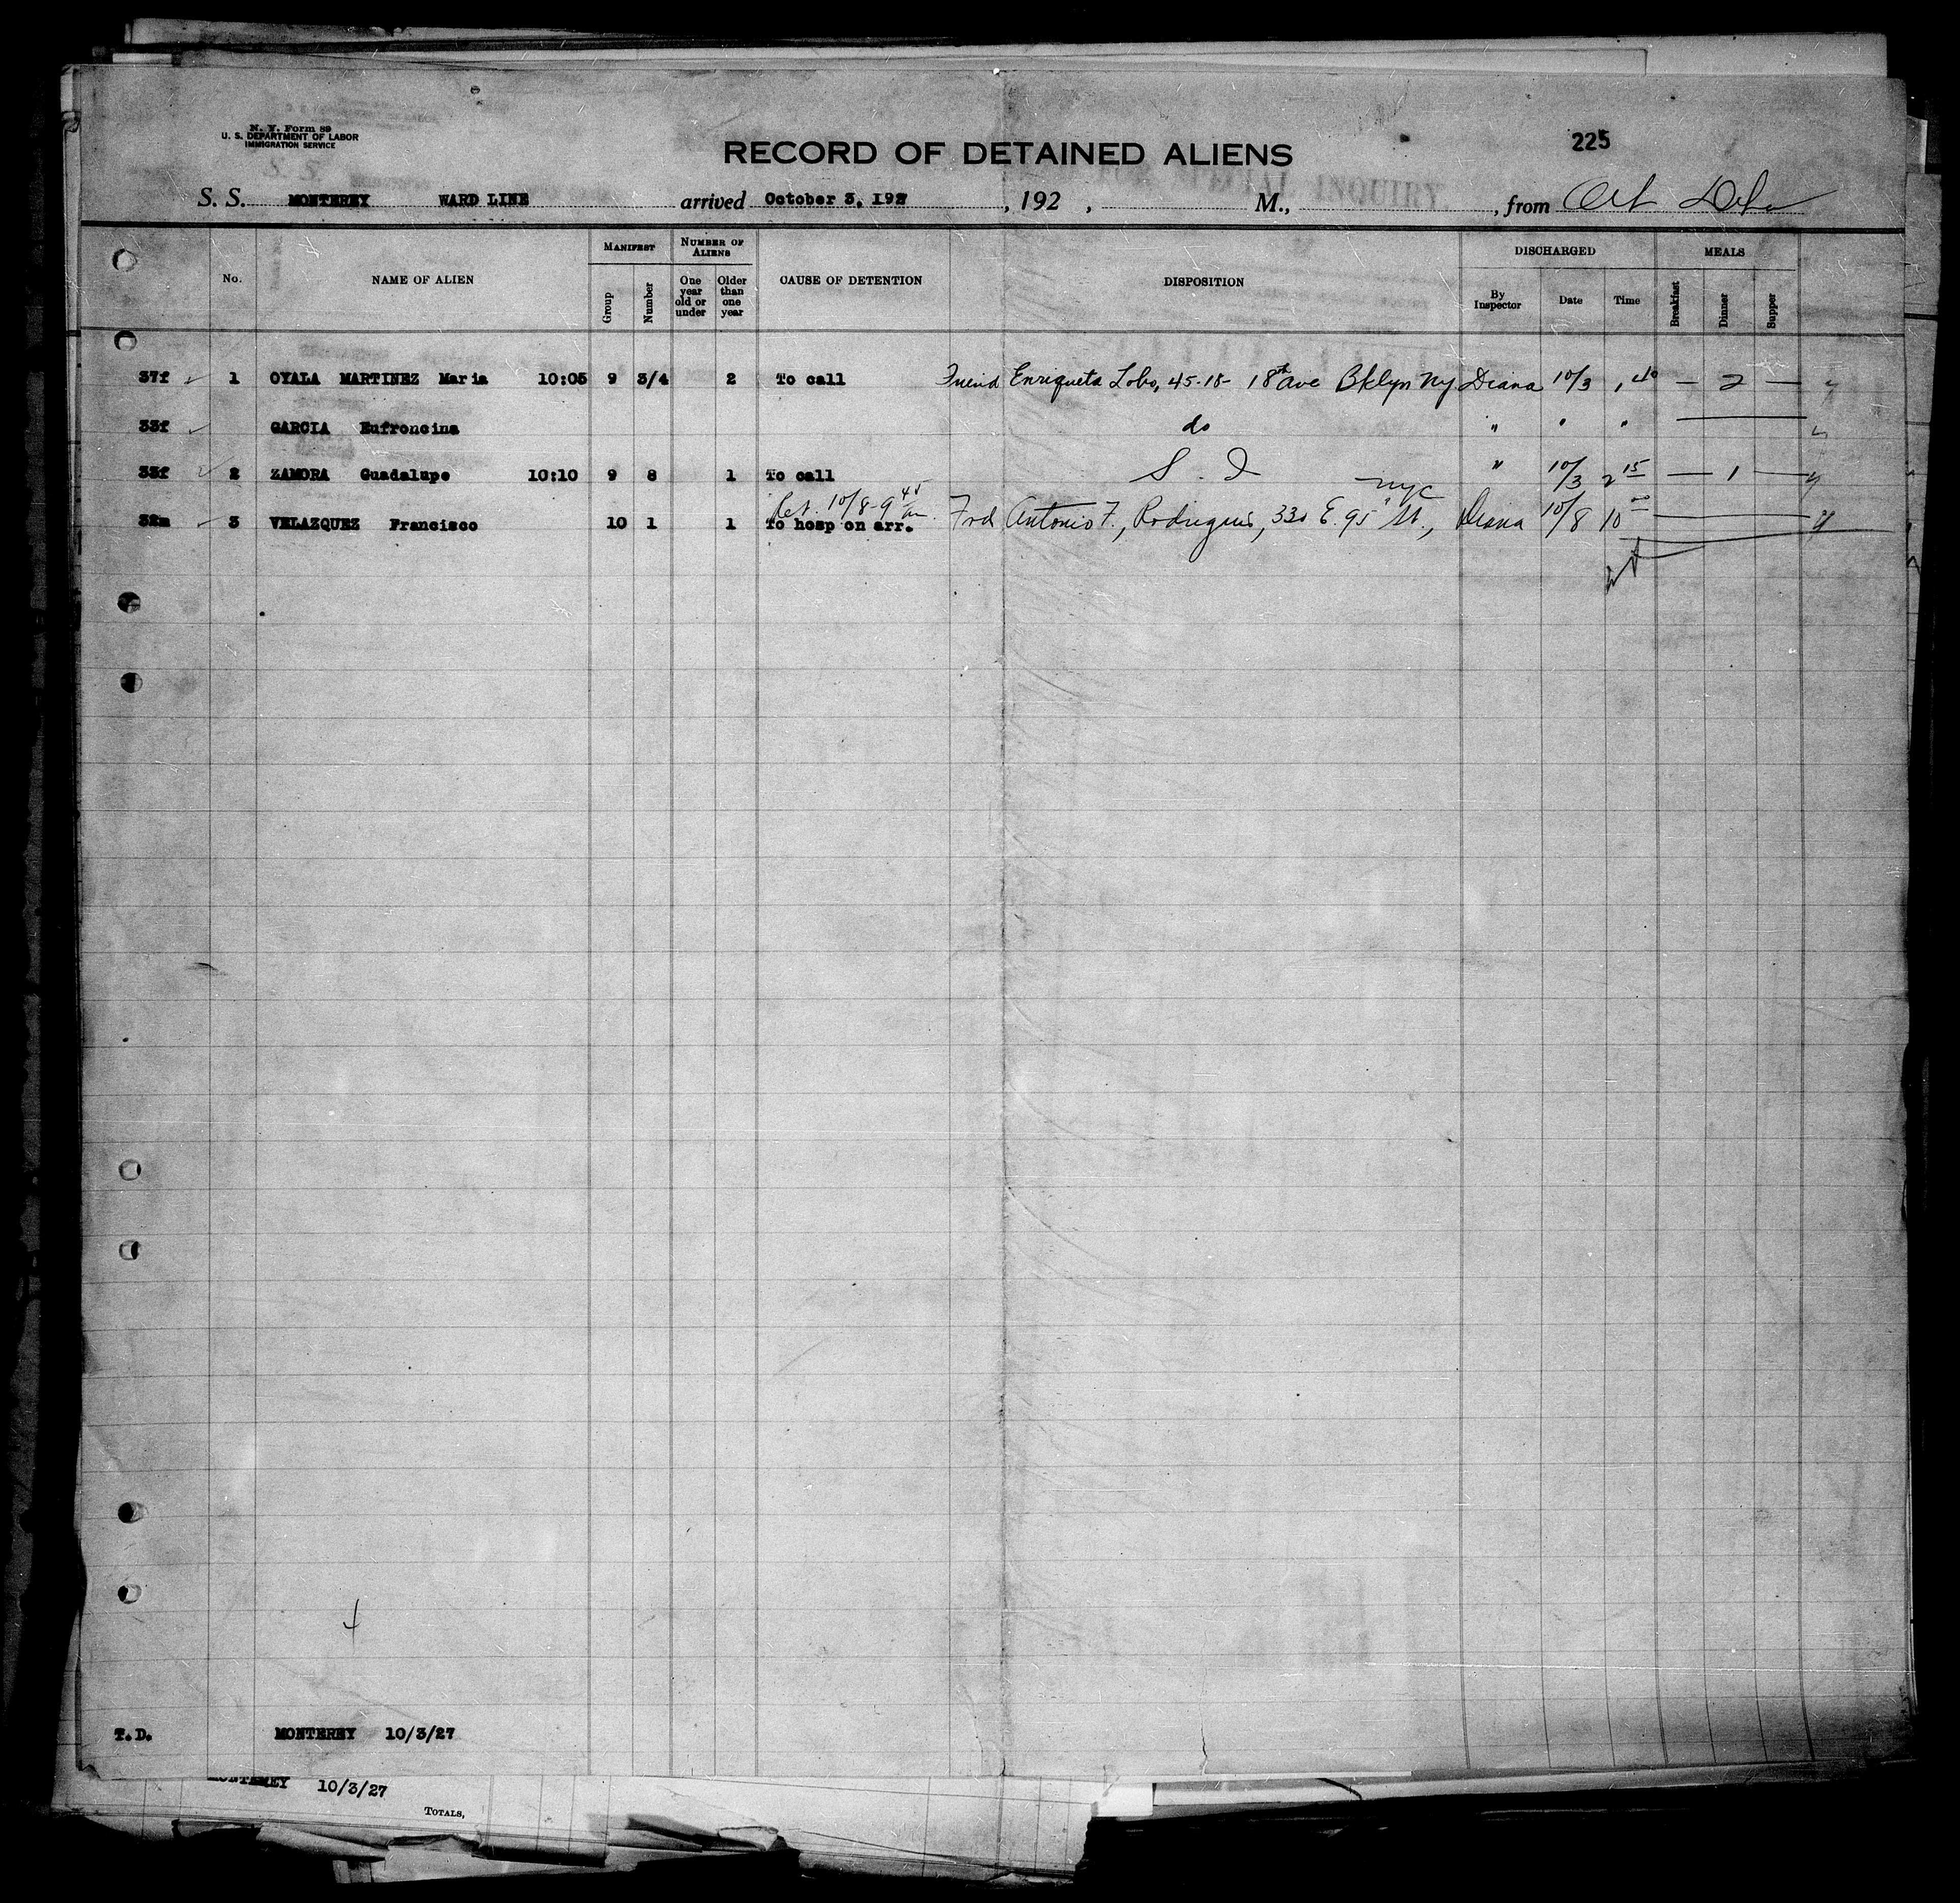 N. Y. Form 89
U. S. DEPARTMENT OF LABOR
IMMIGRATION SERVICE
225
RECORD OF DETAINED ALIENS
S. S. MONTEREY WARD LINE arrived October 3, 1927 , 192 , M., , from
FOR SPECIAL INQUIRY
No. NAME OF ALIEN MANIFEST Group Number NUMBER OF ALIENS One year old or under Older than one year CAUSE OF DETENTION DISPOSITION DISCHARGED By Inspector Date Time MEALS Breakfast Dinner Supper
37f 1 OYALA MARTINEZ Maria 10:05 9 3/4 2 To call Friend Enriqueta Lobo, 45-18- 18th ave Bklyn NY Diana 10/3 1 40 — 2 —
33f GARCIA Eufroncina do " " "
33f 2 ZAMORA Guadalupe 10:10 9 8 1 To call S. I " 10/3 2 15 — 1 —
nyc
10/8-9 45
32m 3 VELAZQUEZ Francisco 10 1 1 To hosp on arr. Frd Antonio F., Rodriguis, 330 E. 95" St., Diana 10/8 10
T.D. MONTEREY 10/3/27
MONTEREY 10/3/27
TOTALS,